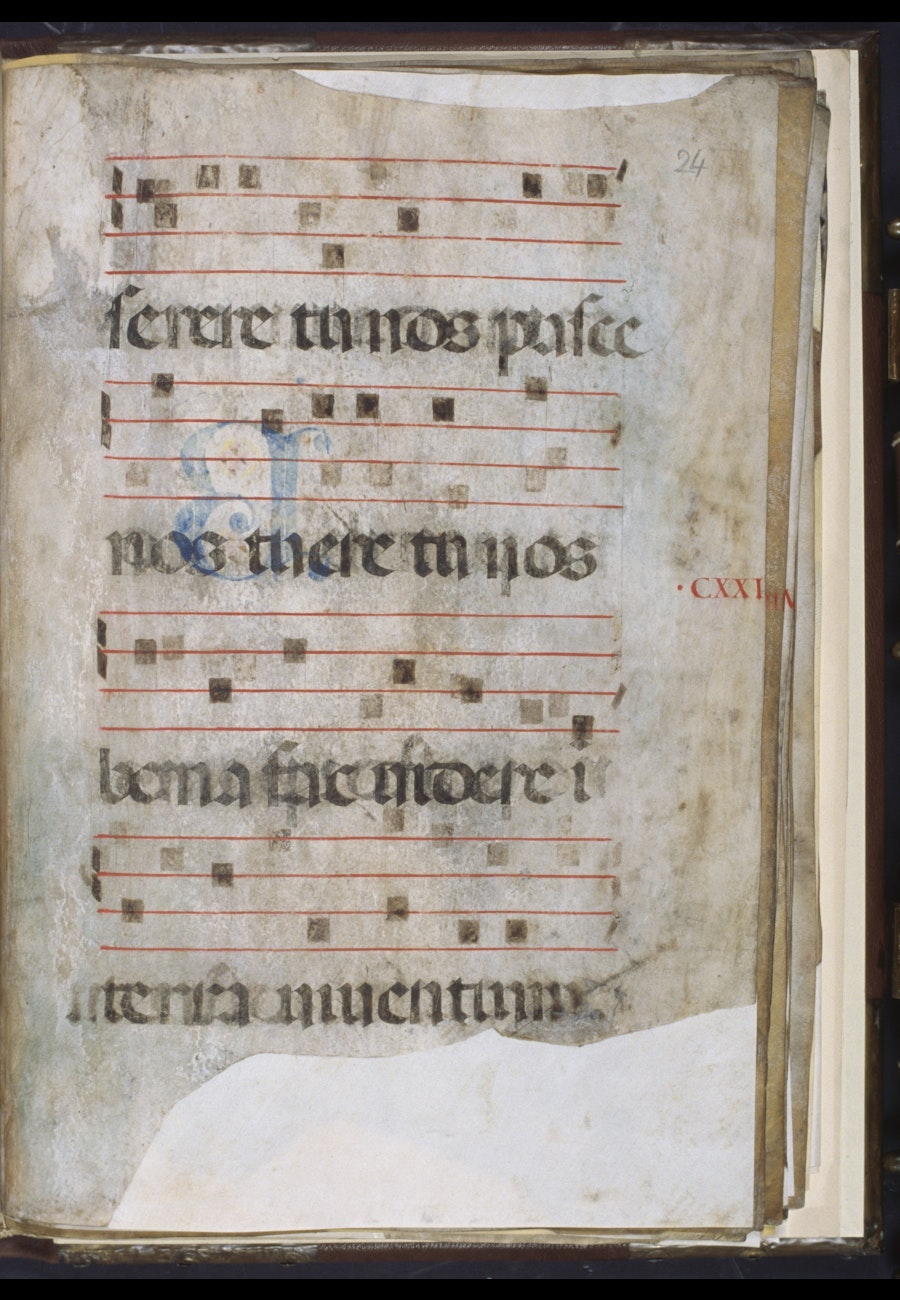 24
serere tu nos pasce
nos tuere tu nos
bona fac videre i
terra viventium